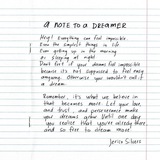 a NOTE TO a DREAMER
Hey! Everything can feel impossible.
Even the simplest things in life
Even getting up in the morning
or staying at night
Don't fret if your dreams feel impossible
because it's not supposed to feel easy
anyway. Otherwise you wouldn't call it
a dream.
Remember, it's what we believe in
that becomes more. Let your love
and trust, and perseverance make
your dreams grow until one day
you realize that you're already there,
and so free to dream more